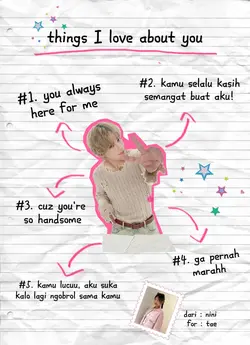 things I love about you
#1. you always
here for me
#2. kamu selalu kasih
semangat buat aku!
#3. cuz you're
so handsome
#4. ga pernah
marahh
#5. kamu lucuu, aku suka
kalo lagi ngobrol sama kamu
dari : nini
for : tae